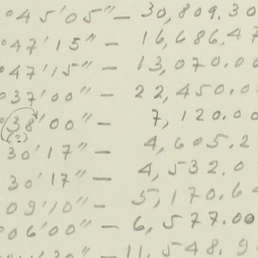 °45'05" — 30,809.30
°47'15" — 16,686.47
°47'15" — 13,070.00
°37'00" — 22,450.00
°38'00" — 7,120.00
(?)
30'17" — 4,605.2
30'17" — 4,532.0
09'10" — 5,170.64
°06'00" — 6,577.00
11,548.9